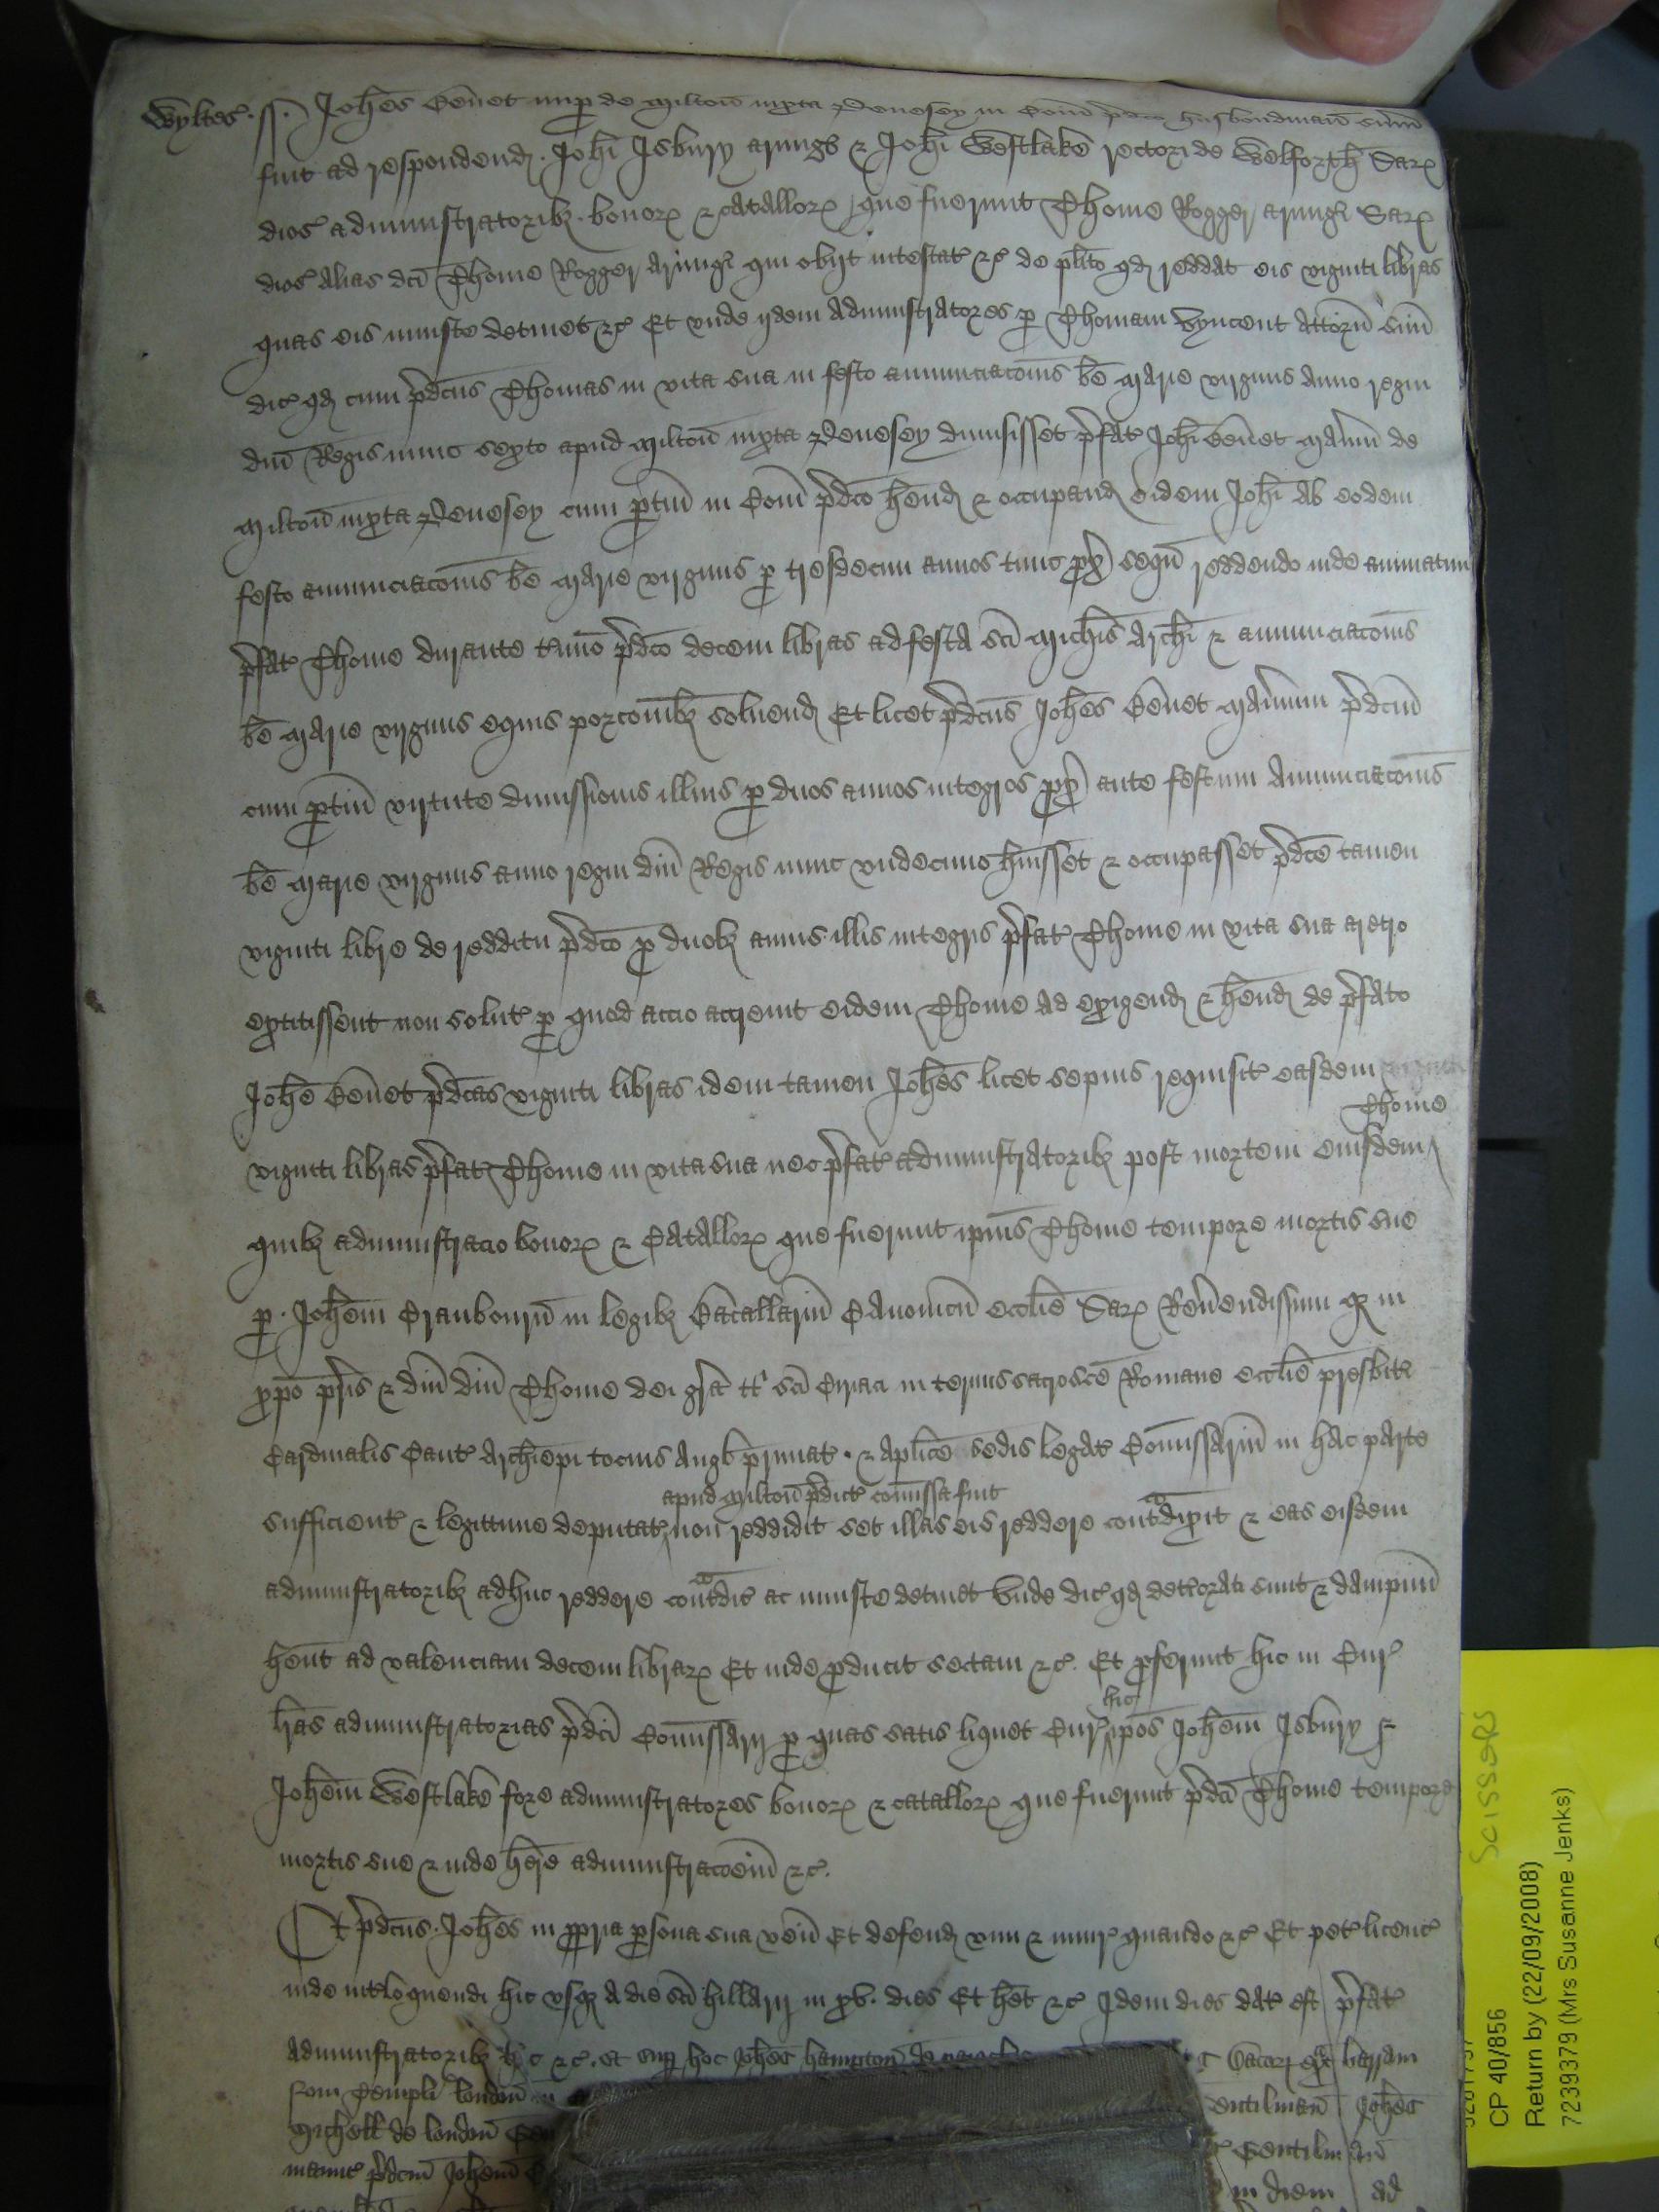 Wyltes' ss Joh'es Benet nup' de Milton' iuxta Pevesey in Com' p'dco husbondman sum'
fuit ad respondend' Joh'i Isbury armig'o & Joh'i Westlake rectori de Welforth' Sar'
dioc' administratorib3 bonor' & catallor' que fuerunt Thome Rogger armig'i Sar'
dioc' alias dci Thome Rogger armig'i qui obijt intestat' &c' de pl'ito qd' reddat eis viginti libras
quas eis iniuste detinet &c' Et unde ijdem administratores p' Thomam Vyncent attorn' suu'
dic' qd' cum p'dcus Thomas in vita sua in festo annunciaco'is be' Marie virginis anno regni
dni' Regis nunc sexto apud Milton' iuxta Pevesey dimisisset p'fat' Joh'i Benet Man'iu' de
Milton' iuxta Pevesey cum p'tin' in Com' p'dco h'end' & occupand' eidem Joh'i ab eodem
festo annunciaco'is be' Marie virginis p' tresdecim annos tunc px' sequ' reddendo inde annuatim
p'fat' Thome durante t'mi'o p'dco decem libras ad festa sci Mich'is Arch'i & annunciaco'is
be' Marie virginis equis porco'ib3 soluend' Et licet p'dcus Joh'es Benet Man'ium p'dcum
cum p'tin' virtute dimissionis illius p' duos annos integros px' ante festum Annunciaco'is
be' Marie virginis anno regni dni' Regis nunc undecimo h'uisset & occupasset p'dce tamen
viginti libre de redditu p'dco p' duob3 annis illis integris p'fat' Thome in vita sua aretro
extitissent non solut' p' quod accio accreuit eidem Thome ad exigend' & h'end' de p'fato
Joh'e Benet p'dcas viginti libras idem tamen Joh'es licet sepius requisit' easdem
Thome
viginti libras p'fat' Thome in vita sua nec p'fat' administratorib3 post mortem eiusdem
quib3 administracio bonor' & Catallor' que fuerunt ip'ius Thome tempore mortis sue
p' Joh'em Cranbourn' in legib3 Bacallariu' Canonicu' eccl'ie Sar' Reu'endissimi q3 in
xpo' p'ris & dni' dni' Thome dei gr'a tt' sci Ciriaci in termis sacrosce' Romane eccl'ie presbit'i
Cardinalis Cant' Archiep'i tocius Angl' primat' & ap'lice sedis legat' Co'missariu' in hac parte
apud Milton' p'dict' co'missa fuit
sufficient' & legittime deputat' non reddidit set illas eis reddere cont'dixit & eas eisdem
administratorib3 adhuc reddere cont'dic' ac iniuste detinet Unde dic' qd' det'iorati sunt & dampnu'
h'ent ad valenciam decem librar' Et inde p'ducit sectam &c'. Et p'ferunt hic in Cur'
hic
l'ras administratorias p'dci Co'missarij p' quas satis liquet Cur' ip'os Joh'em Isbury &
Joh'em Westlake fore administratores bonor' & catallor' que fuerunt p'dci Thome tempore
mortis sue & inde h'ere administraco'em &c'.
Et p'dcus Joh'es in p'pria p'sona sua ven' Et defend' vim & iniur' quando &c' Et pet' licenc'
inde int'loquendi hic usq3 a die sci Hillarij in xv. dies Et h'et &c' Idem dies dat' est p'fat'
administratorib3 hic &c'. Et sup' hoc Joh'es Hampton' de
Novi Templi London'
entilman Joh'es
Michell de London' Gen
Gentilman
manuc' p'dcum Joh'em
in diem ad
SCISSERS
CP 40/856
Return by (22/09/2008)
7239379 (Mrs Susanne Jenks)